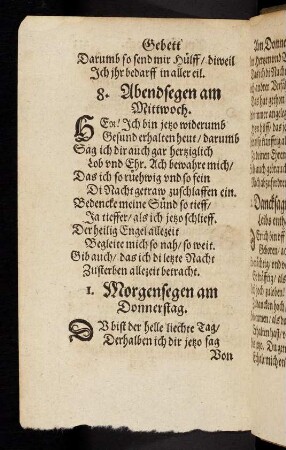 Gebett
Darumb so send mir Hülff / diweil
Ich jhr bedarff in aller eil.
8. Abendsegen am
Mittwoch.
HErr / Ich bin jetzo widerumb
Gesund erhalten heut / darumb
Sag ich dir auch gar hertziglich
Lob vnd Ehr. Ach bewahre mich /
Das ich so rühwig vnd so fein
Di Nacht getraw zuschlaffen ein.
Bedencke meine Sünd so tieff /
Ja tieffer / als ich jetzo schlieff.
Der heilig Engel allezeit
Begleite mich so nah / so weit.
Gib auch / das ich di letzte Nacht
Zusterben allezeit betracht.
1. Morgensegen am
Donnerstag.
DV bist der helle liechte Tag /
Derhalben ich dir jetzo sag
Von